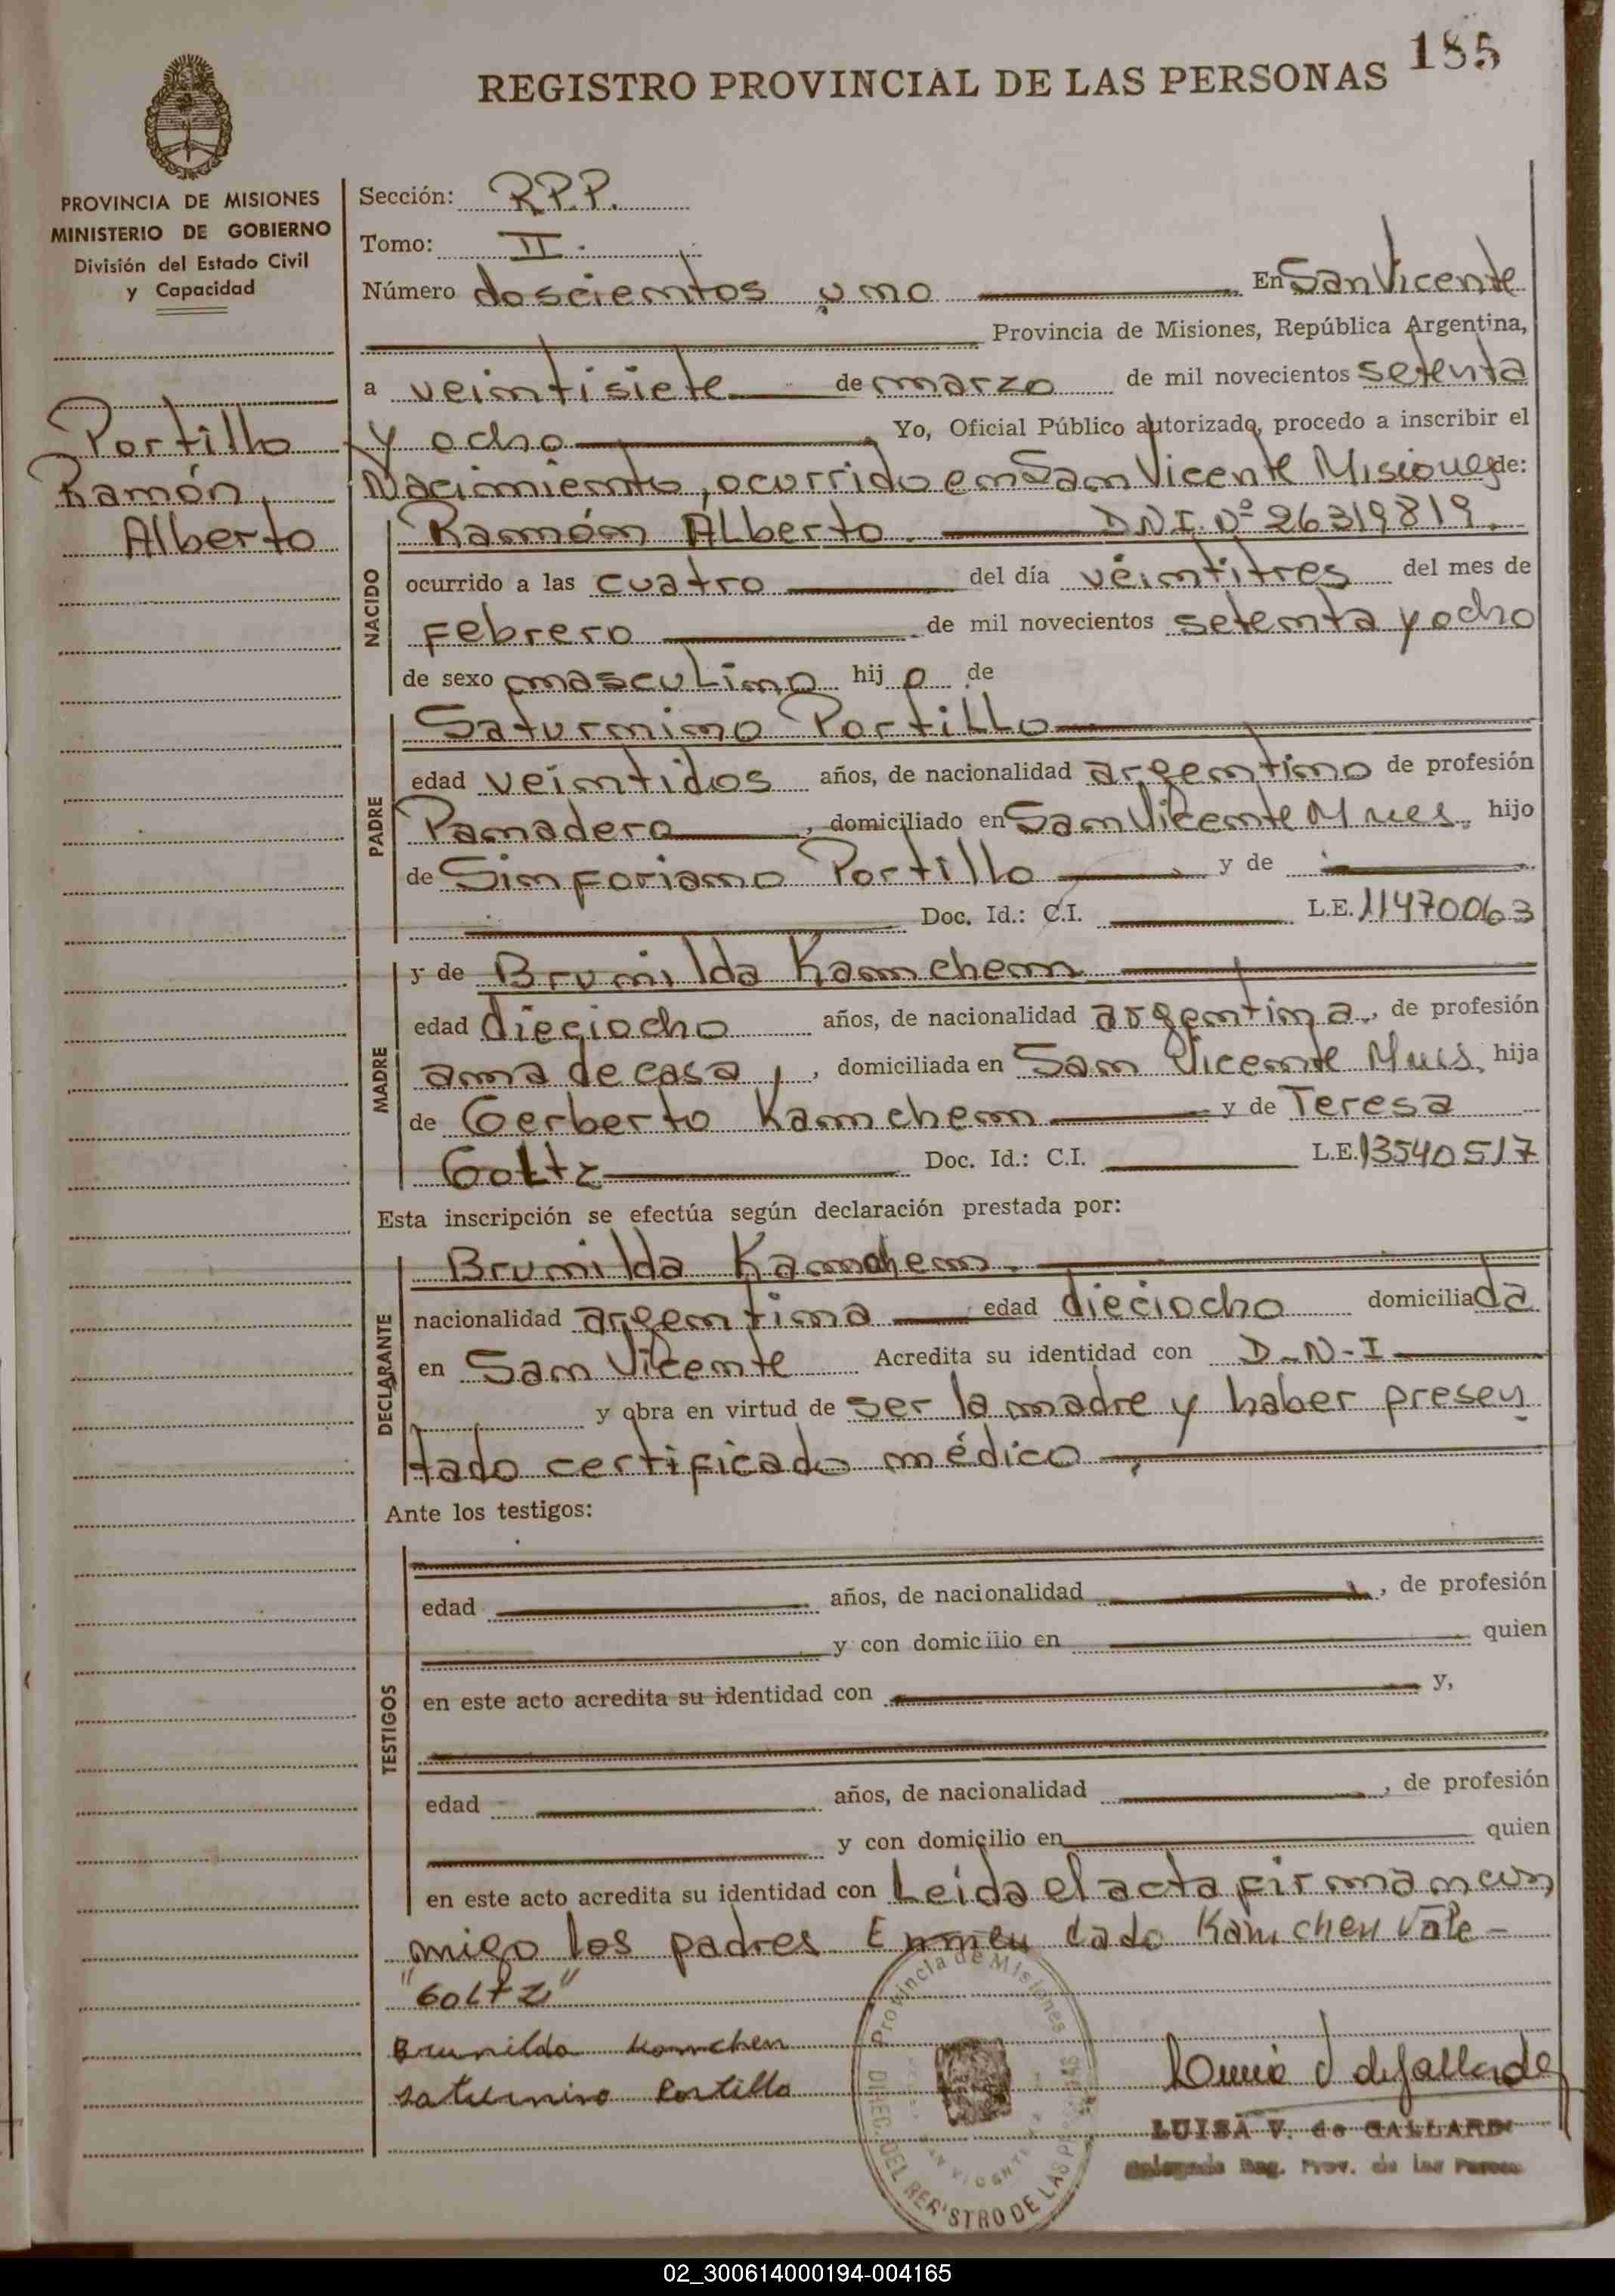 185
REGISTRO PROVINCIAL DE LAS PERSONAS
PROVINCIA DE MISIONES
MINISTERIO DE GOBIERNO
División del Estado Civil
y Capacidad
Portillo
Ramón
Alberto
Sección: R.P.P.
Tomo: II.
Número doscientos uno En San Vicente
Provincia de Misiones, República Argentina,
a veintisiete de marzo de mil novecientos setenta
y ocho Yo, Oficial Público autorizado, procedo a inscribir el
Nacimiento, ocurrido en San Vicente Misiones de:
NACIDO
Ramón Alberto. DNI. Nº 26319819.
ocurrido a las cuatro del día veintitres del mes de
Febrero de mil novecientos setenta y ocho
de sexo masculino hij o de
PADRE
Saturnino Portillo
edad veintidos años, de nacionalidad argentino de profesión
Panadero, domiciliado en San Vicente Mnes. hijo
de Sinforiano Portillo y de
Doc. Id.: C.I. L.E. 11470063
MADRE
y de Brunilda Kamchen
edad dieciocho años, de nacionalidad argentina, de profesión
ama de casa, domiciliada en San Vicente Mnes, hija
de Gerberto Kamchen y de Teresa
Goltz Doc. Id.: C.I. L.E. 13540517
Esta inscripción se efectúa según declaración prestada por:
DECLARANTE
Brunilda Kamchen.
nacionalidad argentina edad dieciocho domiciliada
en San Vicente Acredita su identidad con D-N-I
y obra en virtud de ser la madre y haber presen
tado certificado médico
Ante los testigos:
TESTIGOS
edad años, de nacionalidad , de profesión
y con domicilio en quien
en este acto acredita su identidad con y,
edad años, de nacionalidad , de profesión
y con domicilio en quien
en este acto acredita su identidad con Leída el acta firman con
migo los padres Enmen dado Kamchen Vale -
"Goltz"
Brunilda Kamchen
Saturnino Portillo
Provincia de Misiones
DIREC. DEL REGISTRO DE LAS PERSONAS
SAN VICENTE
LUISA V. de GALLARDO
Delegada Reg. Prov. de las Person
02_300614000194-004165